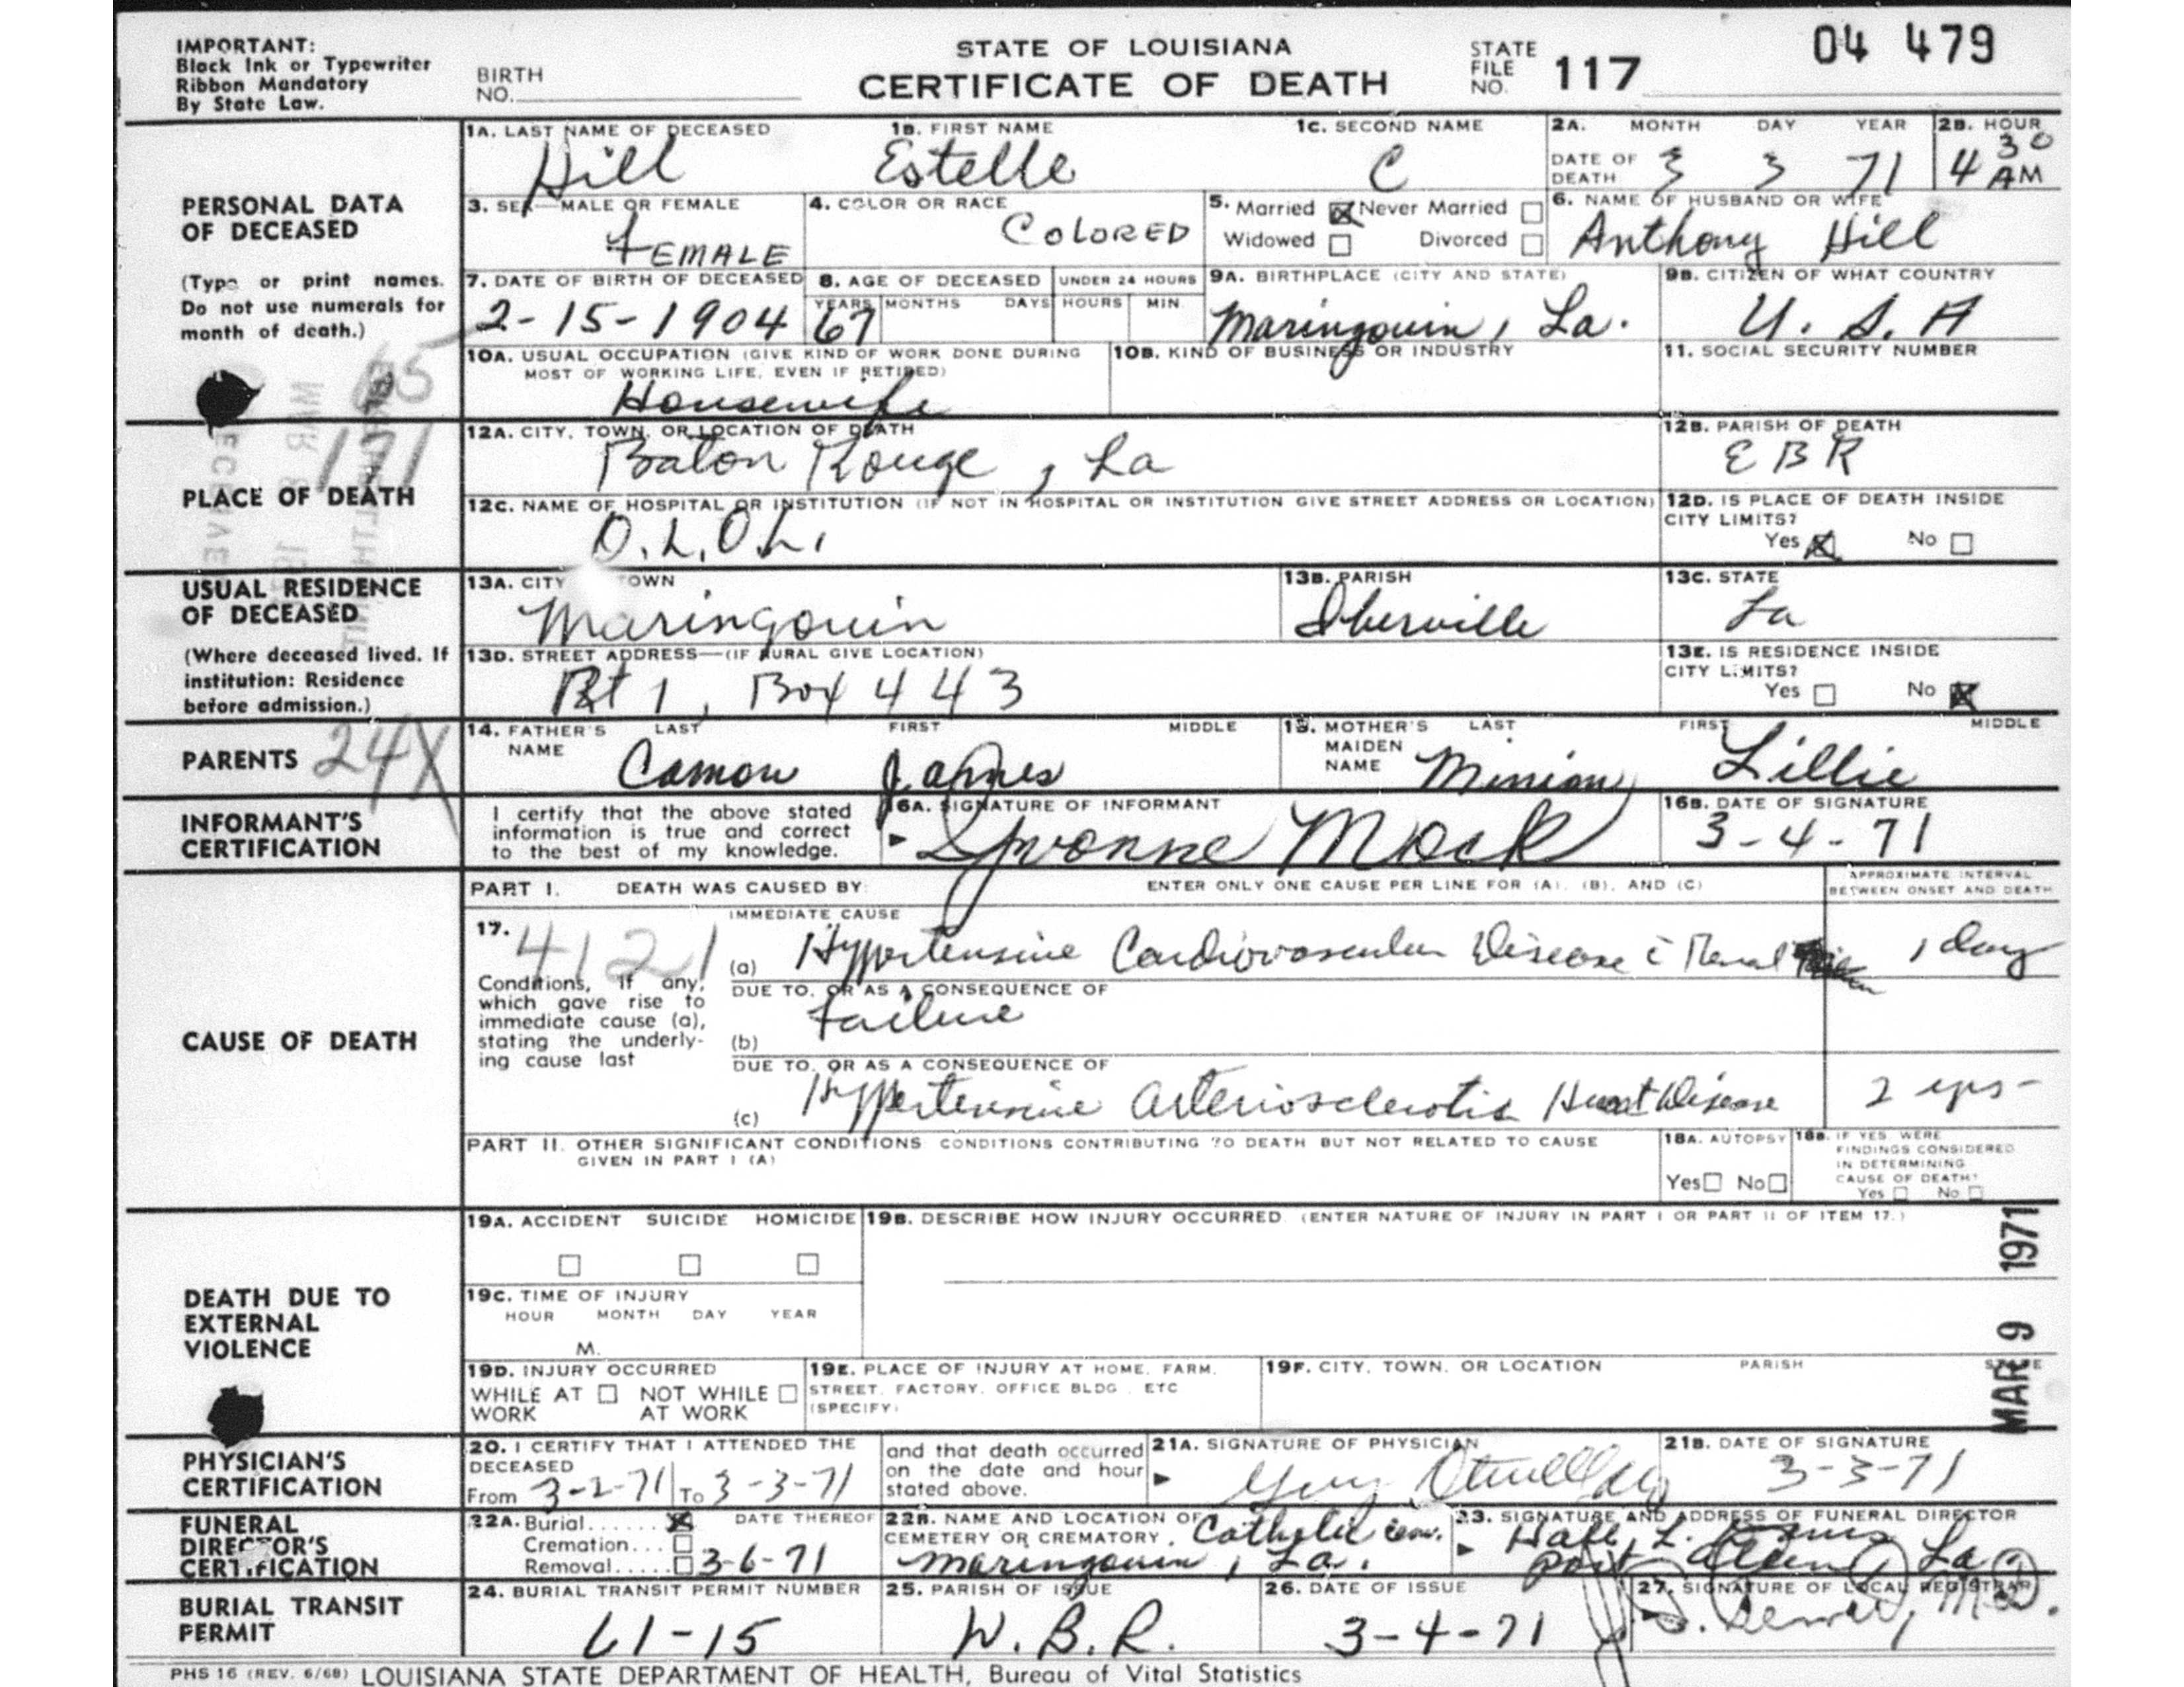 IMPORTANT:
Black Ink or Typewriter
Ribbon Mandatory
By State Law.
BIRTH
NO.
STATE OF LOUISIANA
CERTIFICATE OF DEATH
STATE
FILE
NO. 117
04 479
PERSONAL DATA
OF DECEASED
(Type or print names.
Do not use numerals for
month of death.)
1A. LAST NAME OF DECEASED 1B. FIRST NAME 1C. SECOND NAME
Hill Estelle C
2A. MONTH DAY YEAR
DATE OF
DEATH 3 3 71
2B. HOUR
4 30 AM
3. SEX—MALE OR FEMALE
FEMALE
4. COLOR OR RACE
COLORED
5. Married Never Married
Widowed Divorced
6. NAME OF HUSBAND OR WIFE
Anthony Hill
7. DATE OF BIRTH OF DECEASED
2-15-1904
8. AGE OF DECEASED UNDER 24 HOURS
YEARS MONTHS DAYS HOURS MIN.
67
9A. BIRTHPLACE (CITY AND STATE)
Maringouin, La.
9B. CITIZEN OF WHAT COUNTRY
U. S. A
10A. USUAL OCCUPATION (GIVE KIND OF WORK DONE DURING
MOST OF WORKING LIFE, EVEN IF RETIRED)
Housewife
10B. KIND OF BUSINESS OR INDUSTRY
11. SOCIAL SECURITY NUMBER
PLACE OF DEATH
12A. CITY, TOWN, OR LOCATION OF DEATH
Baton Rouge, La
12B. PARISH OF DEATH
EBR
12C. NAME OF HOSPITAL OR INSTITUTION (IF NOT IN HOSPITAL OR INSTITUTION GIVE STREET ADDRESS OR LOCATION)
O.L.O.L.
12D. IS PLACE OF DEATH INSIDE
CITY LIMITS?
Yes No
USUAL RESIDENCE
OF DECEASED
(Where deceased lived. If
institution: Residence
before admission.)
13A. CITY TOWN
Maringouin
13B. PARISH
Iberville
13C. STATE
La
13D. STREET ADDRESS—(IF RURAL GIVE LOCATION)
Rt 1, Box 443
13E. IS RESIDENCE INSIDE
CITY LIMITS?
Yes No
PARENTS 24X
14. FATHER'S LAST FIRST MIDDLE
NAME
Camon James
15. MOTHER'S LAST FIRST MIDDLE
MAIDEN
NAME
Minion, Lillie
INFORMANT'S
CERTIFICATION
I certify that the above stated
information is true and correct
to the best of my knowledge.
16A. SIGNATURE OF INFORMANT
Yvonne Mock
16B. DATE OF SIGNATURE
3-4-71
CAUSE OF DEATH
PART I. DEATH WAS CAUSED BY: ENTER ONLY ONE CAUSE PER LINE FOR (A), (B), AND (C)
APPROXIMATE INTERVAL
BETWEEN ONSET AND DEATH
17. 4121
Conditions, if any,
which gave rise to
immediate cause (a),
stating the underly-
ing cause last
IMMEDIATE CAUSE
(a) Hypertensive Cardiovascular Disease c Renal 1 day
DUE TO, OR AS A CONSEQUENCE OF
Failure
(b)
DUE TO, OR AS A CONSEQUENCE OF
(c) Hypertensive Arteriosclerotic Heart Disease 2 yrs-
PART II. OTHER SIGNIFICANT CONDITIONS: CONDITIONS CONTRIBUTING TO DEATH BUT NOT RELATED TO CAUSE
GIVEN IN PART I (A)
18A. AUTOPSY
Yes No
18B. IF YES, WERE
FINDINGS CONSIDERED
IN DETERMINING
CAUSE OF DEATH?
Yes No
DEATH DUE TO
EXTERNAL
VIOLENCE
19A. ACCIDENT SUICIDE HOMICIDE
19B. DESCRIBE HOW INJURY OCCURRED (ENTER NATURE OF INJURY IN PART I OR PART II OF ITEM 17.)
19C. TIME OF INJURY
HOUR MONTH DAY YEAR
M.
MAR 9 1971
19D. INJURY OCCURRED
WHILE AT NOT WHILE
WORK AT WORK
19E. PLACE OF INJURY AT HOME, FARM,
STREET, FACTORY, OFFICE BLDG., ETC
(SPECIFY)
19F. CITY, TOWN, OR LOCATION PARISH STATE
PHYSICIAN'S
CERTIFICATION
20. I CERTIFY THAT I ATTENDED THE
DECEASED
From 3-2-71 To 3-3-71
and that death occurred
on the date and hour
stated above.
21A. SIGNATURE OF PHYSICIAN
21B. DATE OF SIGNATURE
3-3-71
FUNERAL
DIRECTOR'S
CERTIFICATION
22A. Burial DATE THEREOF
Cremation
Removal 3-6-71
22B. NAME AND LOCATION OF
CEMETERY OR CREMATORY. Catholic Cem.
Maringouin, La.
23. SIGNATURE AND ADDRESS OF FUNERAL DIRECTOR
Hall, L.
Port Allen, La
BURIAL TRANSIT
PERMIT
24. BURIAL TRANSIT PERMIT NUMBER
61-15
25. PARISH OF ISSUE
W.B.R.
26. DATE OF ISSUE
3-4-71
27. SIGNATURE OF LOCAL REGISTRAR
PHS 16 (REV. 6/68) LOUISIANA STATE DEPARTMENT OF HEALTH, Bureau of Vital Statistics